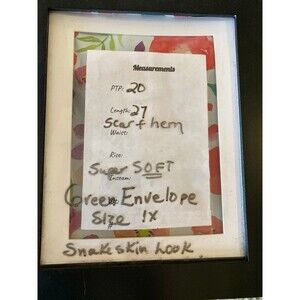 Measurements
PTP: 20
Length: 27
Scarf hem
Waist:
Rise:
Super SOFT
Inseam:
Green Envelope
Size 1X
Snakeskin Look